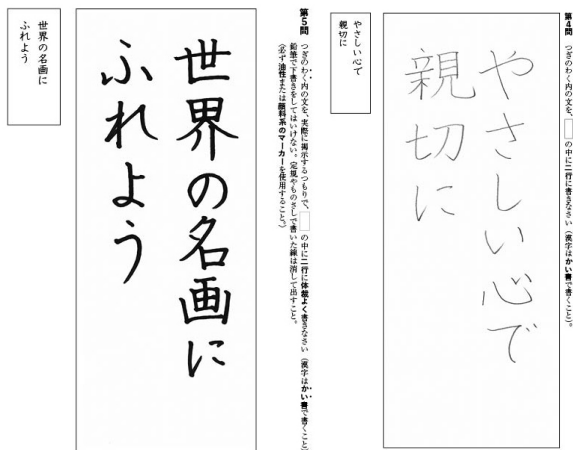 第4問 つぎのわく内の文を、　の中に二行に書きなさい（漢字はかい書で書くこと）。
やさしい心で
親切に
やさしい心で
親切に
第5問 つぎのわく内の文を、実際に掲示するつもりで、　の中に二行に体裁よく書きなさい（漢字はかい書で書くこと）
鉛筆で下書きをしてはいけない。（定規やものさしで書いた線は消して出すこと。
（必ず油性または顔料系のマーカーを使用すること。）
世界の名画に
ふれよう
世界の名画に
ふれよう